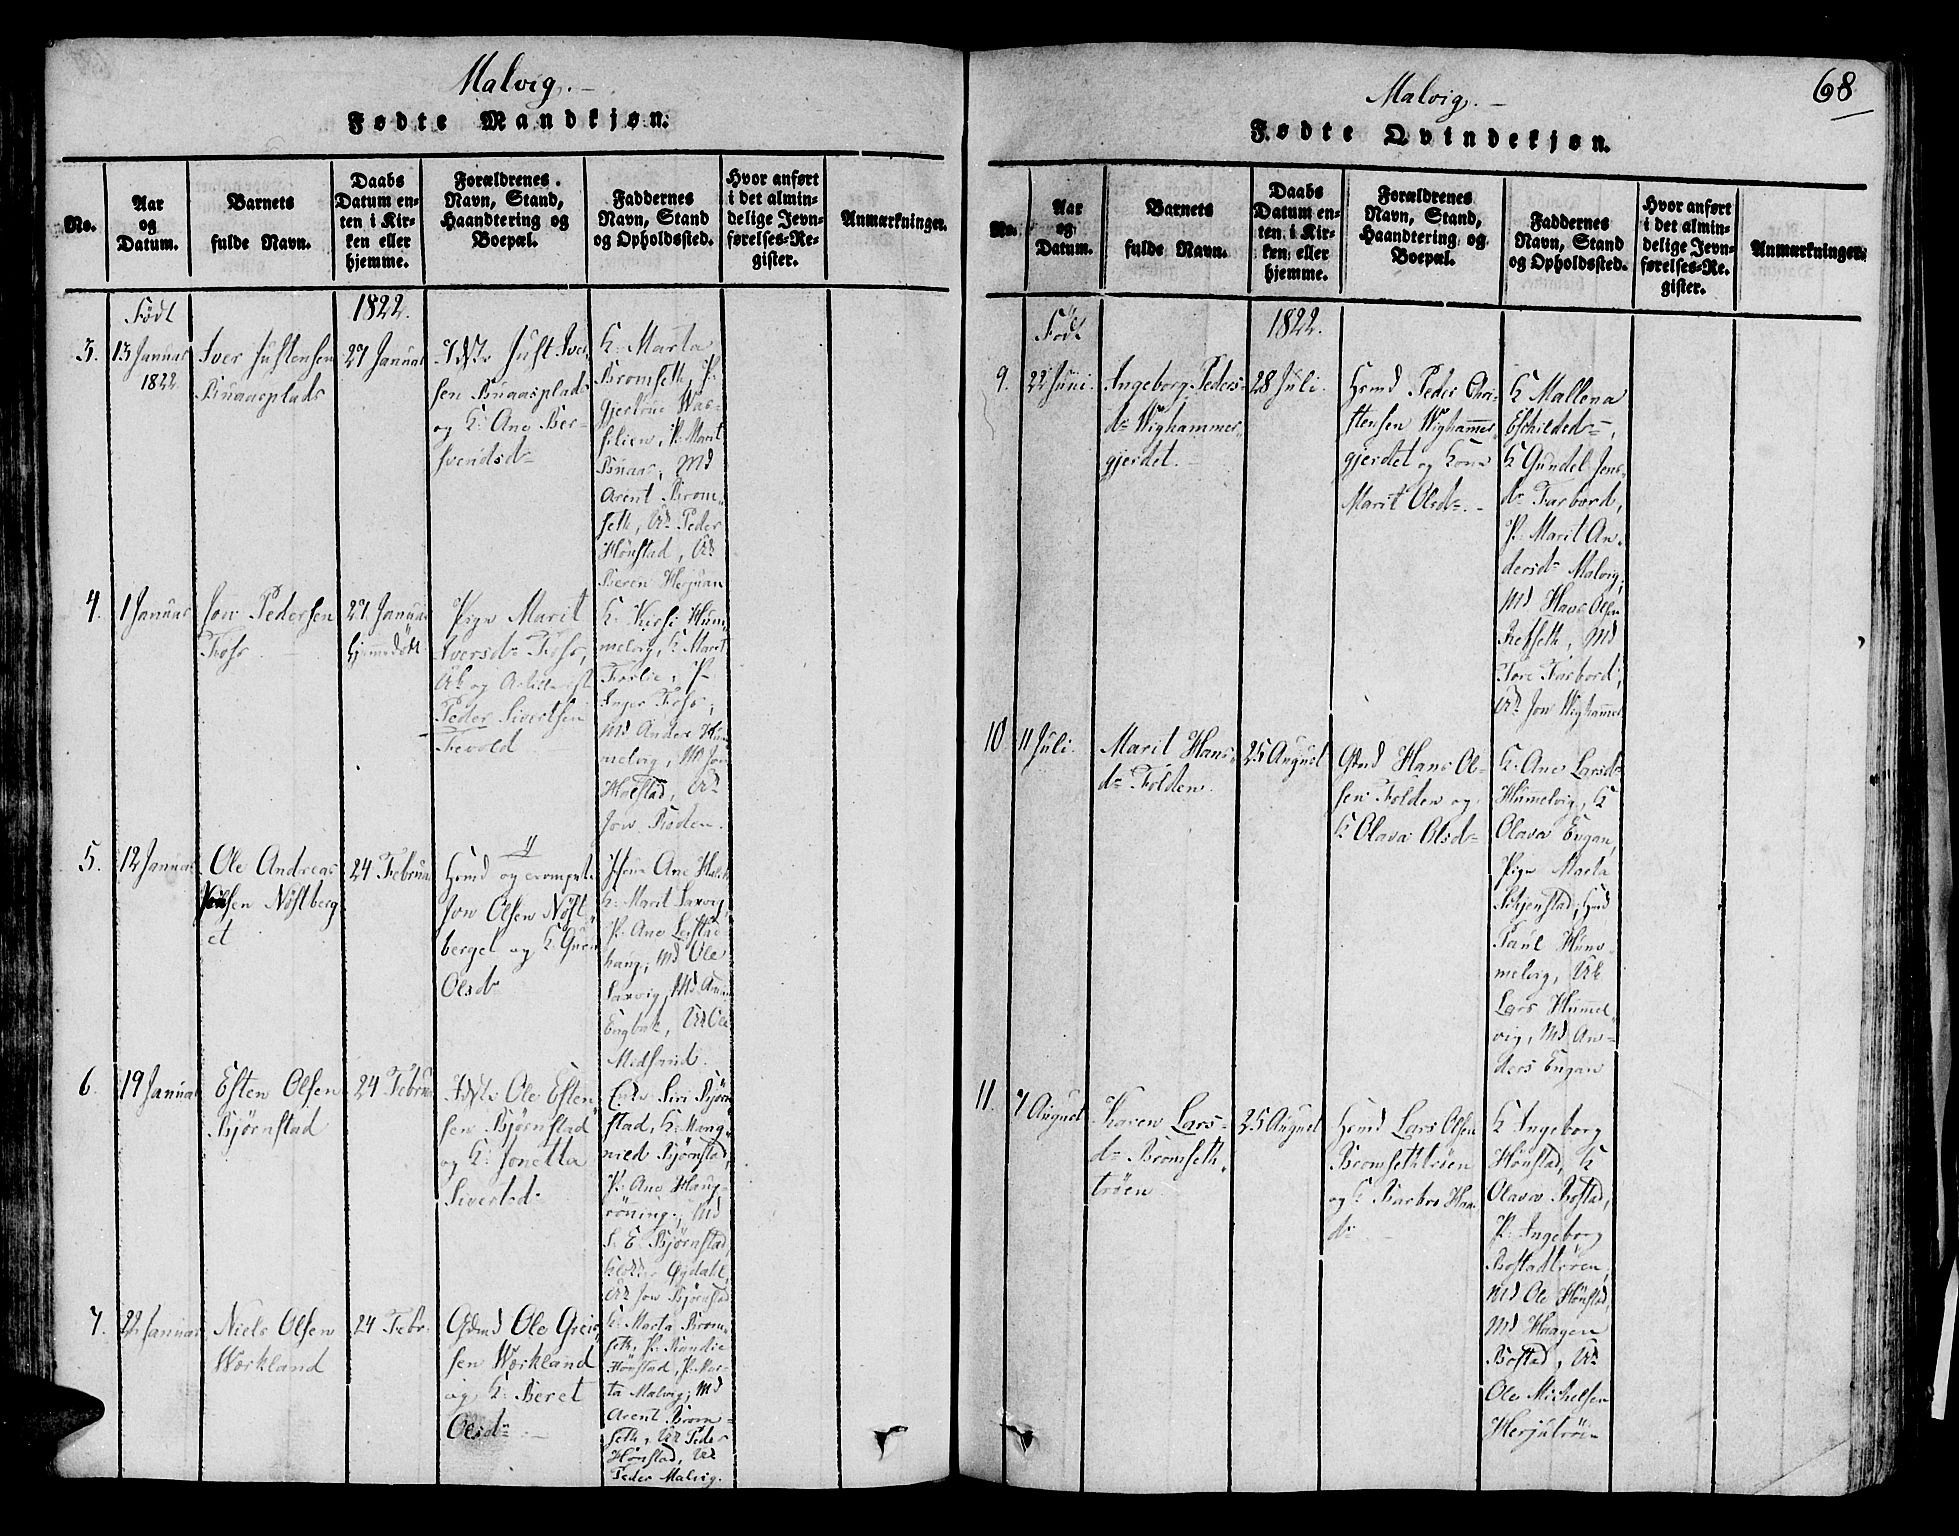 Malvig.
Fødte Mandkjøn.
No.
Aar
og
Datum.
Barnets
fulde Navn.
Daabs
Datum en-
ten i Kir-
ken eller
hjemme.
Forældrenes
Navn, Stand,
Haandtering og
Boepæl.
Faddernes
Navn, Stand
og Opholdssted.
Hvor anført
i det almin-
delige Jevn-
førelses-Re-
gister.
Anmærkninger.
Født
1822.
3.
13 Januar
1822
Iver Justensen
Buaasplads
27 Januar
Idstr Just Iver
sen Buaasplads
og K. Ane Ber-
svendsd
K. Marta
Bromseth, P.
Gjertrue Vas-
selien, P. Marit
Buaas, Md
Arent Brom-
seth, Uk Peder
Hønstad, Uk
Beren Herjuan
4.
1 Januar
Jon Pedersen
Foss
27 Januar
hjemmedøbt
Pige Marit
Iversd Foss,
Uk og Artillerist
Peder Sivertsen
Fevold
K. Kirsi Hum
melvig, K. Marit
Forlie, P.
Inger Foss,
Md Anders Hum
melvig, Md Jon
Hoestad, Uk
Jon Roden.
5.
12 Januar
Ole Andreas
Jonsen Nøstberg
et
24 Februar
Hsmd og
Jon Olsen Nøst
berget og K. Guru
Olsd
Ane
K. Marit Saxvig,
P. Ane Leistad
haug, Md Ole
Saxvig, Md
Engbak, Uk Ole
Midtsand.
6.
19 Januar
Esten Olsen
Bjørnstad
24 Februar
Idstr Ole Esten
sen Bjørnstad
og K. Jonetta
Sivertsd
Enke Siri Bjørn
stad, K. Mang-
nild Bjørnstad,
P. Ane Haug-
røning, Md
S. E. Bjørnstad,
Klokker Opdahl,
Uk Jon Bjørnstad
7.
22 Januar
Niels Olsen
Wærkland
24 Febr.
Gdmd Ole Greis
sen Wærkland
og K. Beret
Olsd
K. Marta Brom
seth, P. Randie
Hønstad, P. Mar-
ta Malvig, Md
Arent Brom-
seth, Uk Peder
Hønstad, Uk
Peder Malvig.
68
Malvig.
Fødte Qvindekjøn.
No.
Aar
og
Datum.
Barnets
fulde Navn.
Daabs
Datum en-
ten i Kir-
ken eller
hjemme.
Forældrenes
Navn, Stand,
Haandtering og
Boepæl.
Faddernes
Navn, Stand
og Opholdssted.
Hvor anført
i det almin-
delige Jevn-
førelses-Re-
gister.
Anmærkninger.
Født
1822.
9.
22 Juni.
Ingeborg Peders-
d Wighammer-
gjerdet.
28 Juli.
Hsmd Peder Chri-
stensen Wighammer-
gjerdet og Kone
Marit Olsd
K Mallena
Eskildsd,
K Gundel Jens-
d Farbord,
P. Marit An-
dersd Malvig,
Md Hans Olsen
Betseth, Md
Tore Farbord,
Uk Jon Wighammer
10.
11 Juli.
Marit Hans-
d Folden.
25 August
Gdmd Hans Ol-
sen Folden og
K Olava Olsd
K. Ane Larsd
Hummelvig, K
Olava Engan,
Pige Marta
Stjenstad, Hmd
Paul Hum-
melvig, Uk
Lars Hummel-
vig, Md An-
ders Engan
11.
7 August
Karen Lars-
d Bromseth-
trøen
25 August
Hsmd Lars Olsen
Bromsethtrøen
og K Barbro Hans
d
K Ingeborg
Hønstad, K
Olava Bostad,
P. Ingeborg
Bostadtrøen,
Md Ole Hønstad,
Md Haagen
Bostad, Uk
Ole Michelsen
Herjutrøe